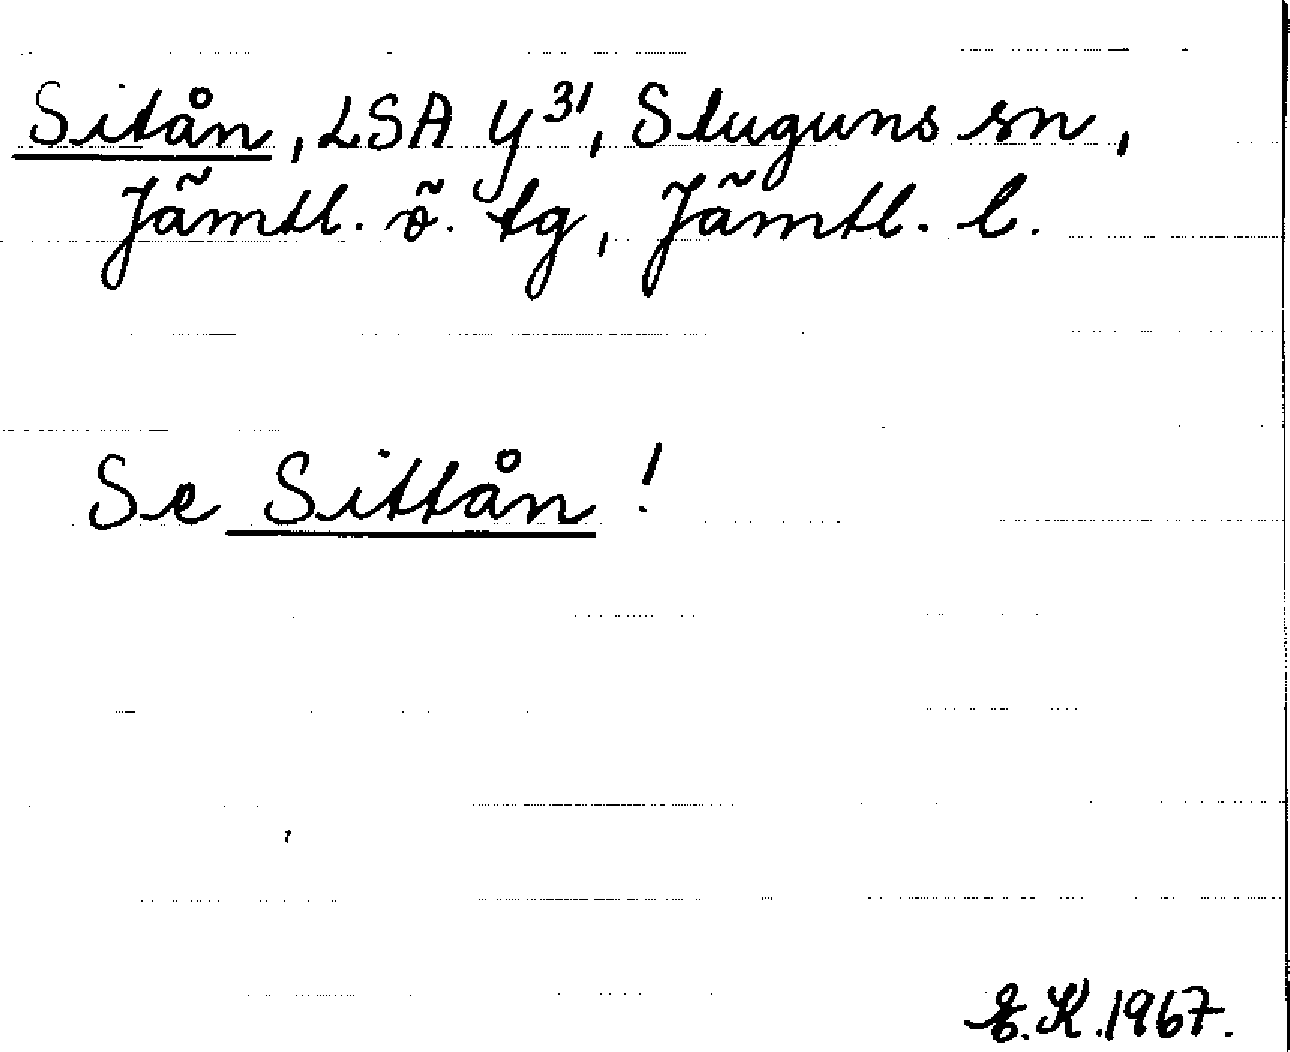 Sitån, LSA y³¹, Stuguns sn,
Jämtl. ö. tg, Jämtl. l.
Se Sittån!
E.K.1967.